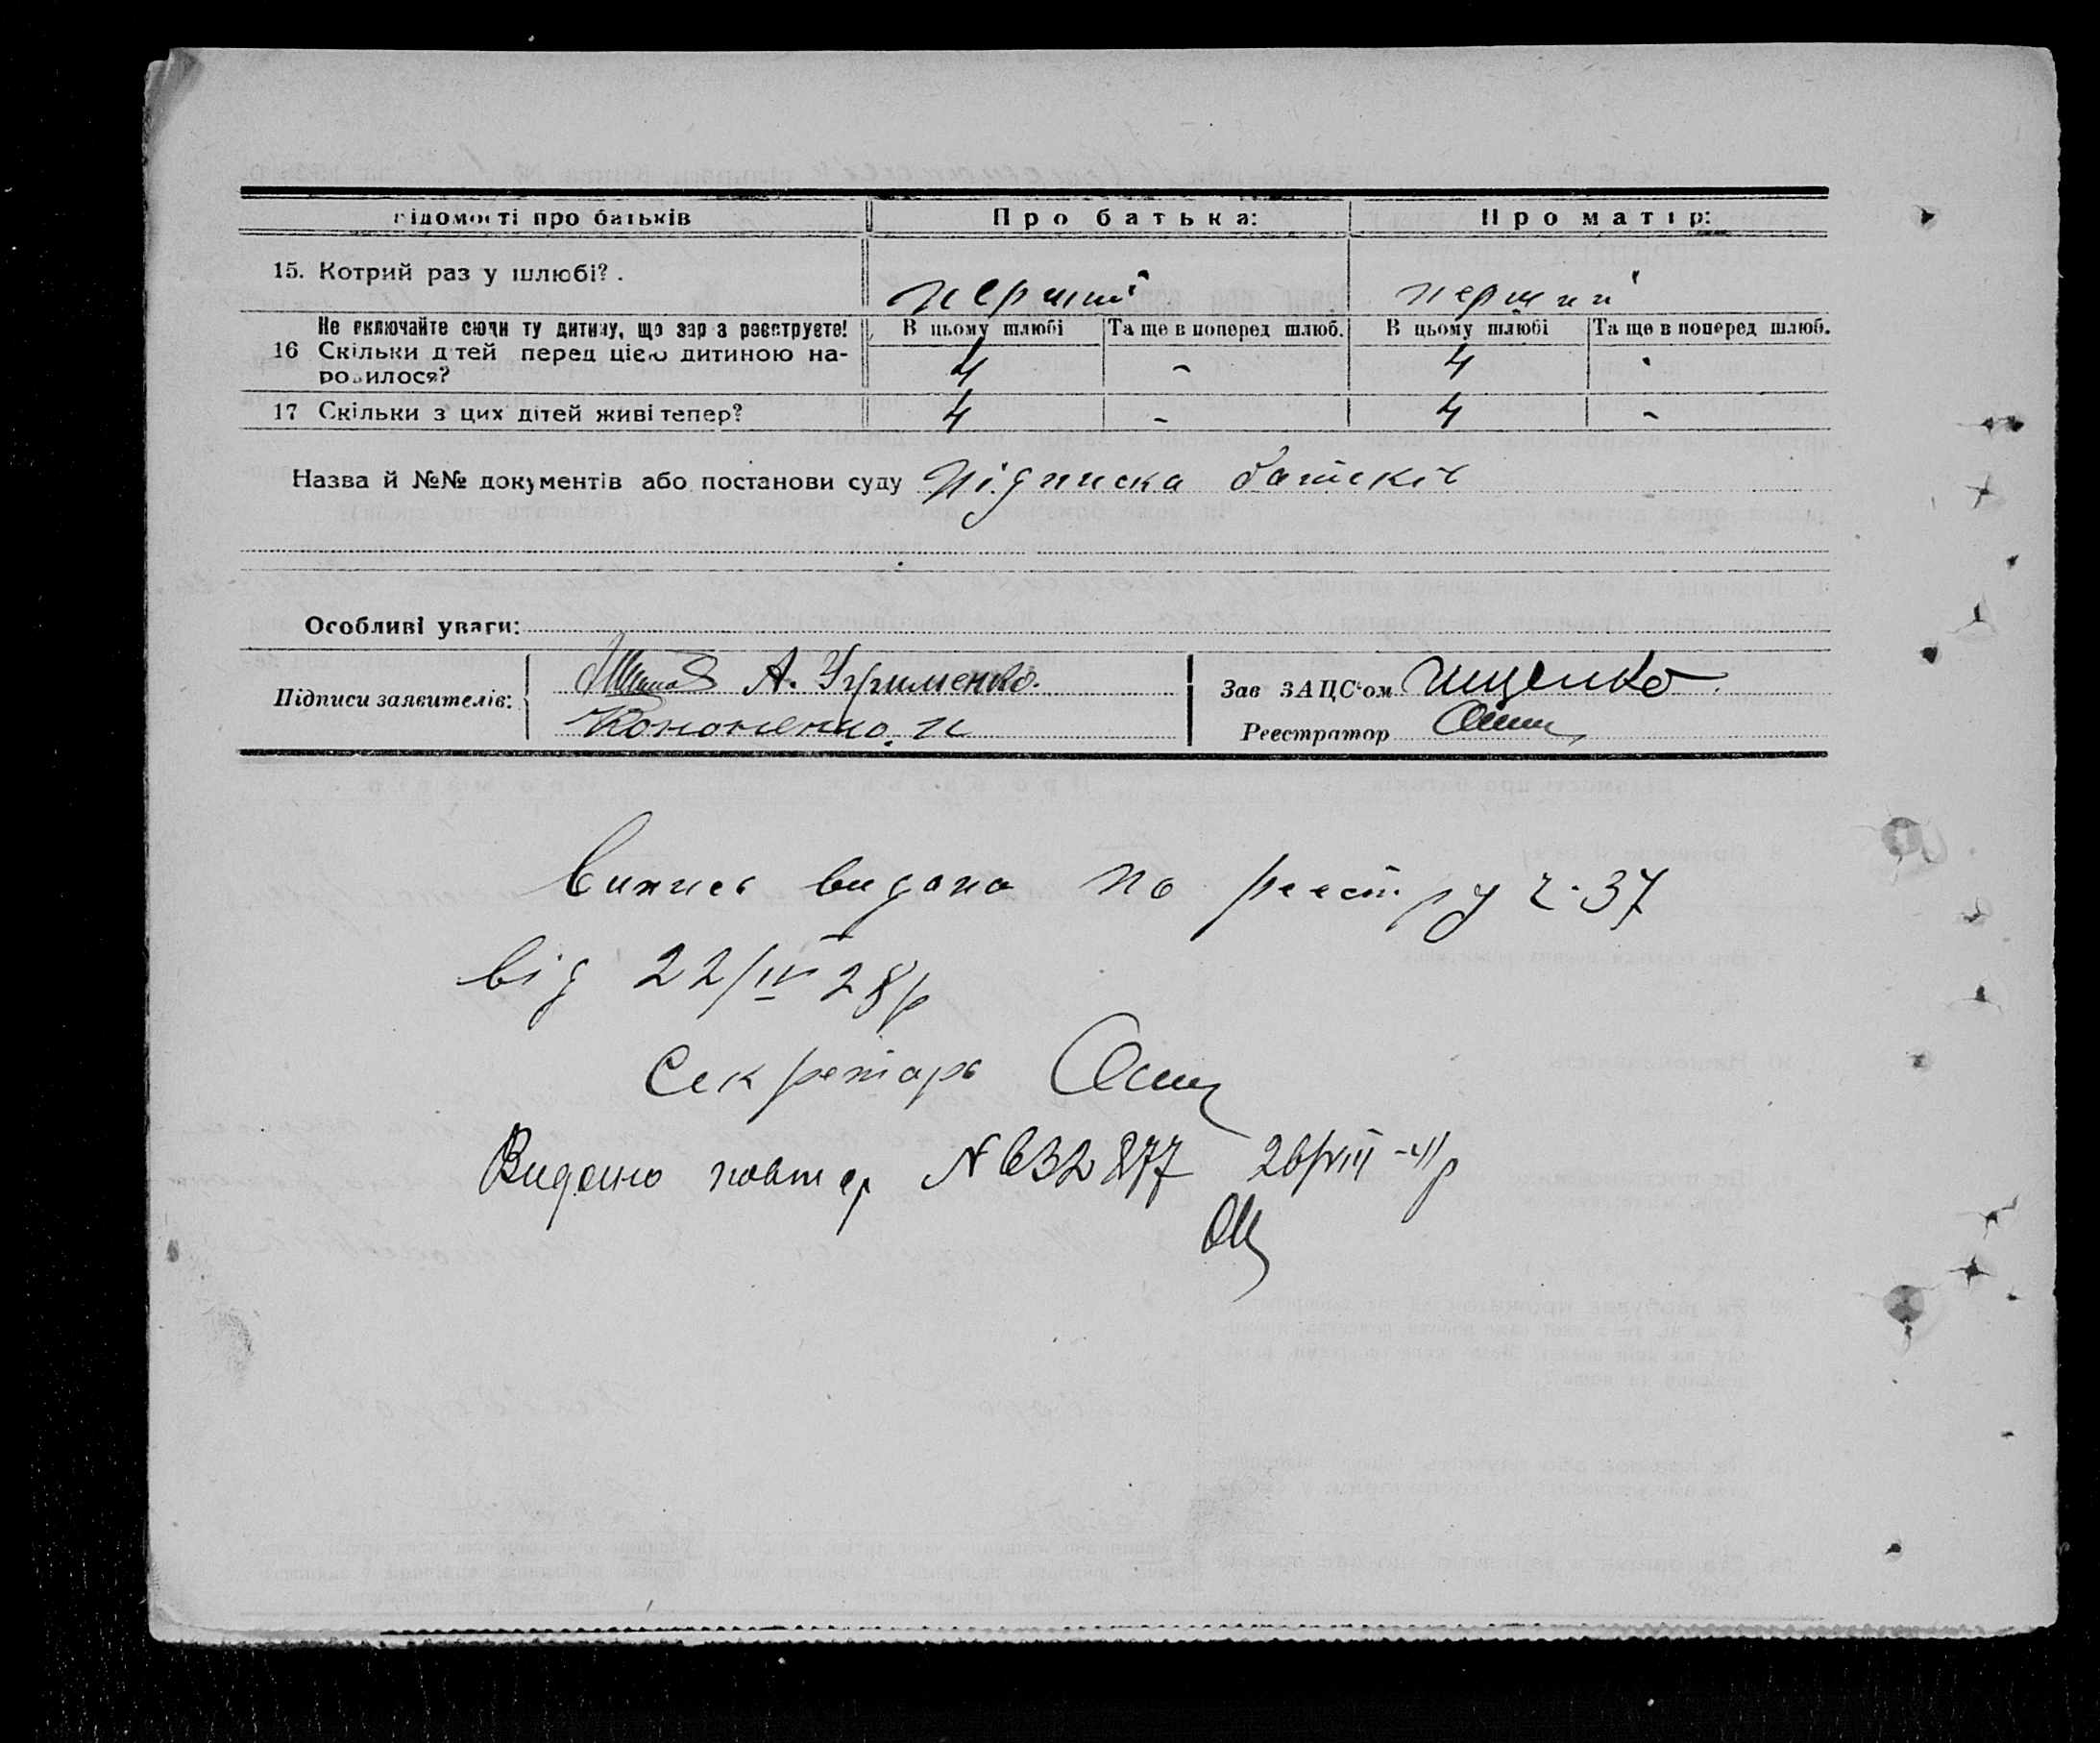 Відомості про батьків Про батька: Про матір:
15. Котрий раз у шлюбі? перший перший
Не включайте сюди ту дитину, що зараз реєструєте! В цьому шлюбі Та ще в поперед шлюб. В цьому шлюбі Та ще в поперед шлюб.
16 Скільки дітей перед цією дитиною на- 4 - 4 -
родилося?
17 Скільки з цих дітей живі тепер? 4 - 4 -
Назва й №№ документів або постанови суду Підписка батьків
Особливі уваги:
Підписи заявителів: А. Уфименко. Зав ЗАЦС'ом Ищенко
Кононенко. И Реєстратор
Випись видана по реєстру ч. 37
від 22/IV 28р
Секретарь
Видано повтор 26/VIII-41р